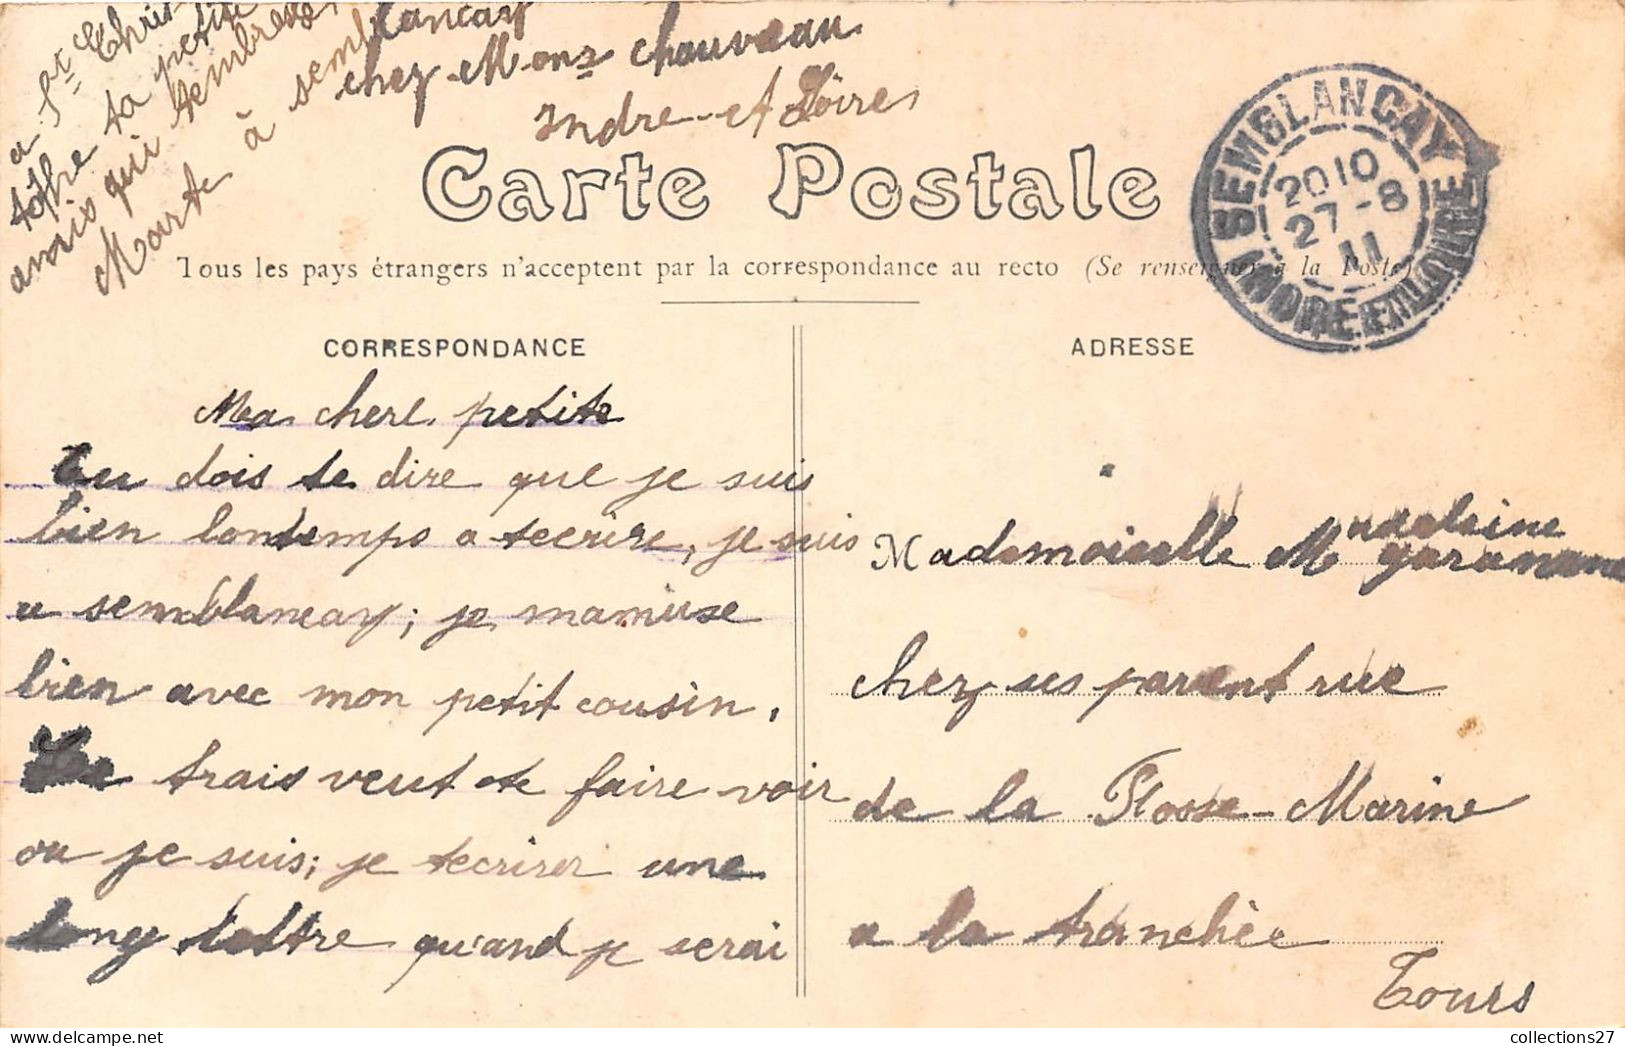 a St Chris
toffre ta petite
amis qui tembresse
Marte à semblancay
chez Monr Chauveau
Indre-et Loire
Carte Postale
Tous les pays étrangers n'acceptent par la correspondance au recto (Se renseigner à la Poste)
SEMBLANCAY
20 10
27 -8
11
INDRE ET LOIRE
CORRESPONDANCE
Ma chere petite
tu dois te dire que je suis
bien lontemps a tecrire, je suis
a semblancay; je mamuse
bien avec mon petit cousin,
trais veut te faire voir
ou je suis; je tecrirer une
long lettre quand je serai
ADRESSE
Mademoiselle Madeleine
chez ses parent rue
de la Fosse-Marine
a la tranchée
Tours
collections27